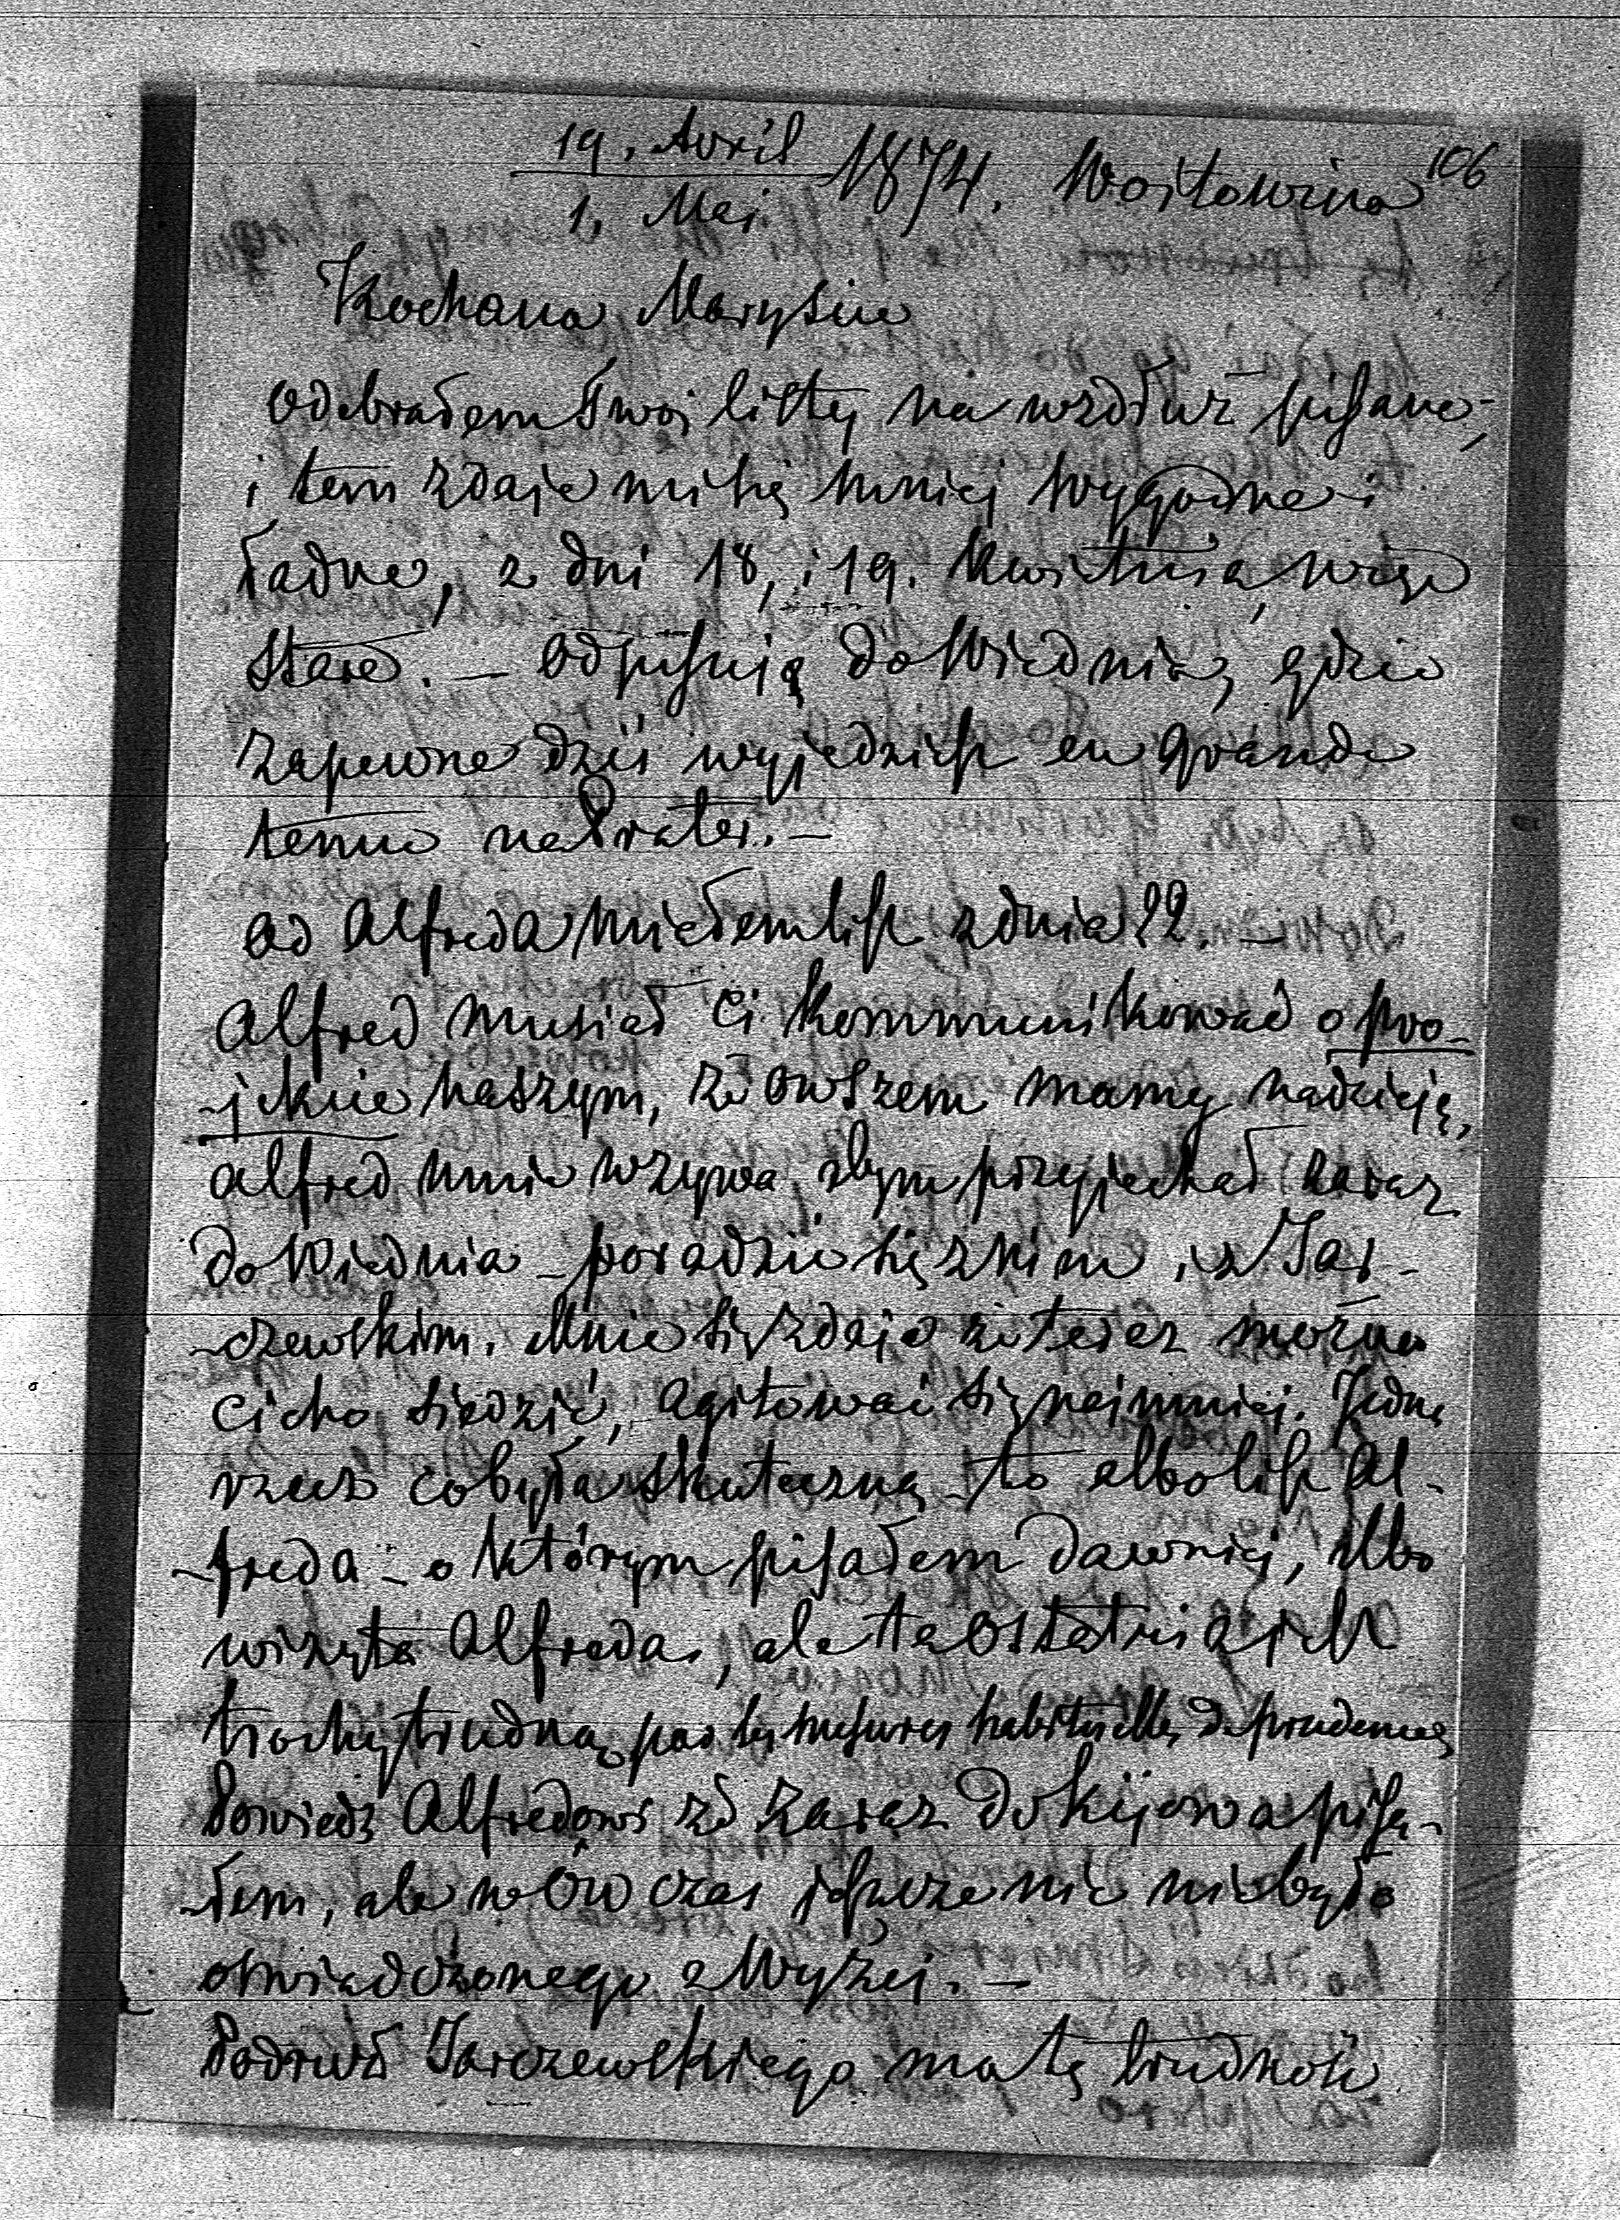 106
19. Avril 1874. Wojtowina
1. Mai
Kochana Marysiu
Odebrałem twoj listy na wzdłuż pisane,
i tem zdaje mi się mniej wygodne i
ładne, z dni 18, i 19. kwietnia, więc
stare. — Odpisuję do Wiednia, gdzie
zapewne dziś wyjedziesz en grande
tenue na Prater. —
Od Alfreda miałem list z dnia 22. —
Alfred musiał Ci kommunikować o pro-
-jekcie naszym, że owszem mamy nadzieję,
Alfred mnie wzywa abym przyjechał zaraz
do Wiednia - poradzić się z nim, i z Jar-
-czewskim. Mnie się zdaje że teraz można
cicho siedzić, agitować się najmniej. Jedną
rzecz coby ła skuteczną - to albo list Al-
-freda - o którym pisałem dawniej, albo
wizyta Alfreda, ale ta ostatnia jest
trochę trudną, par les mesures habituelles de prudence
Powiedz Alfredowi że zaraz do Kijowa pisa-
-łem, ale wówczas jeszcze nic nie było
oświadczonego z Wyżej. —
Podróż Jarczewskiego ma tę trudność